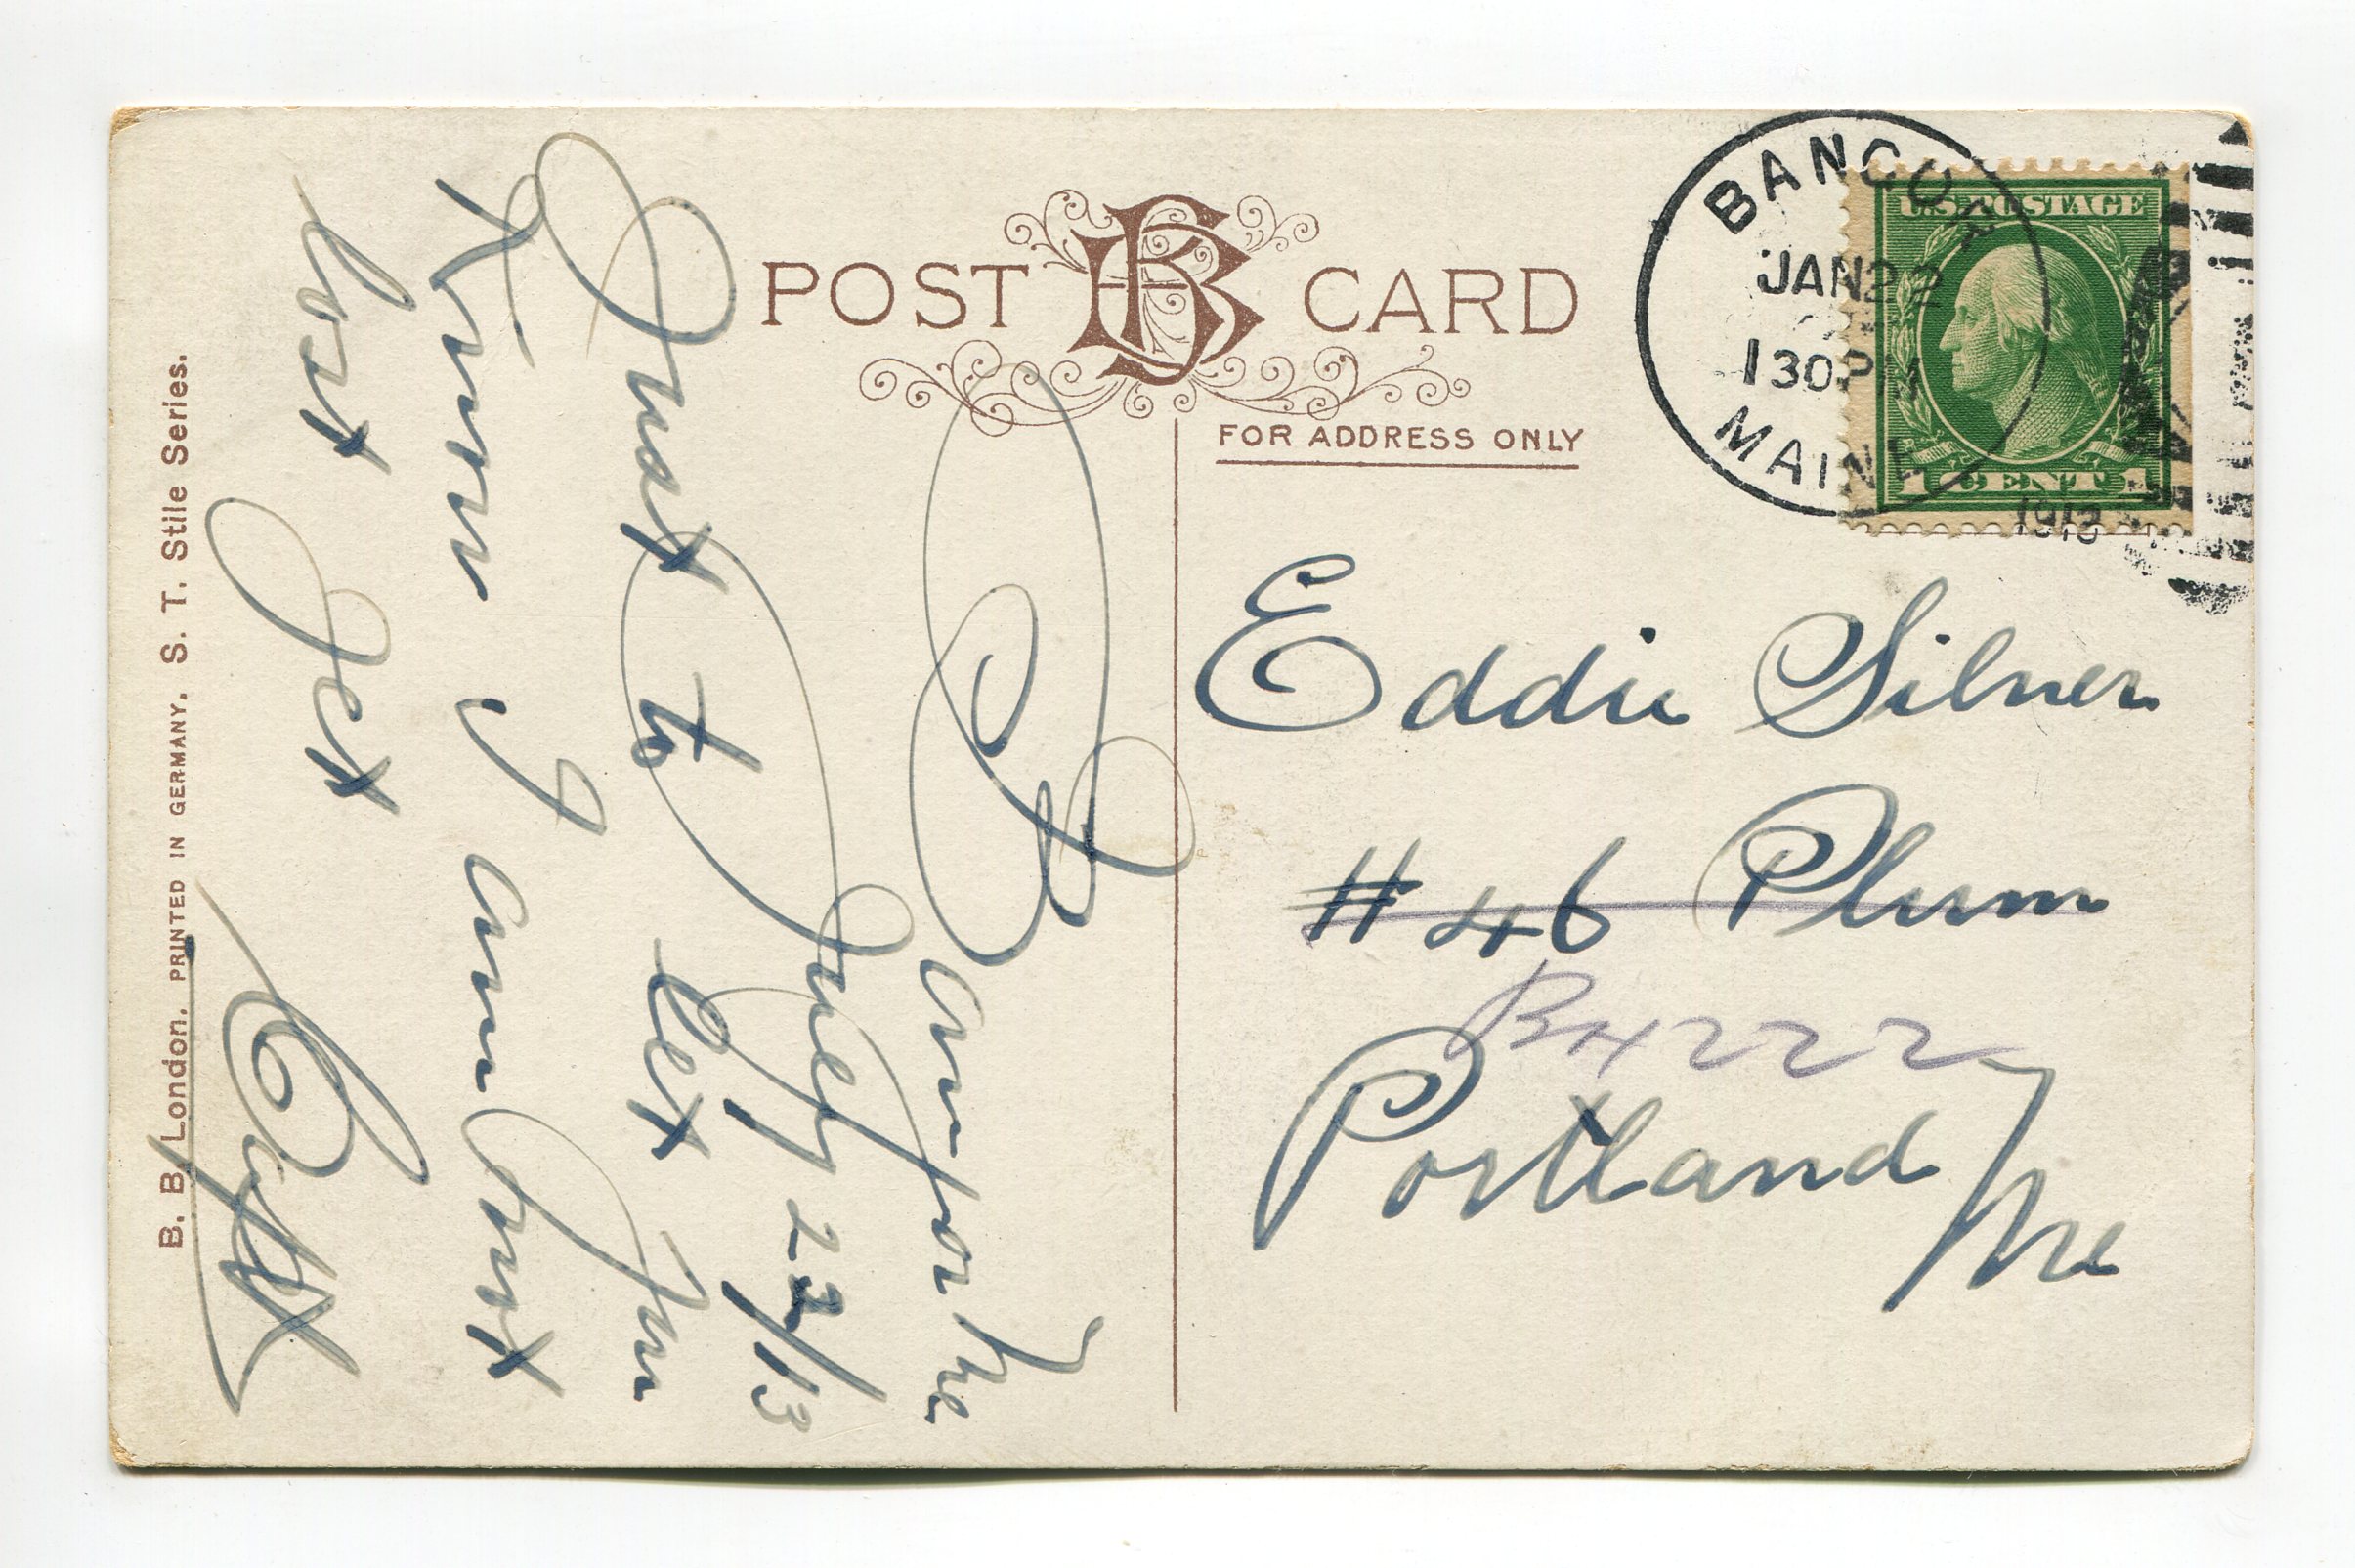 POST CARD
FOR ADDRESS ONLY
BANGOR
JAN 22
1 30 PM
MAINE
1913
U.S. POSTAGE
1 CENT 1
Eddie Silver
# 46 Plum
Bx 222
Portland Me
Bangor Me
July 22/13
Just to let you
know I am not
lost yet
B. B. London. PRINTED IN GERMANY. S. T. Stile Series.